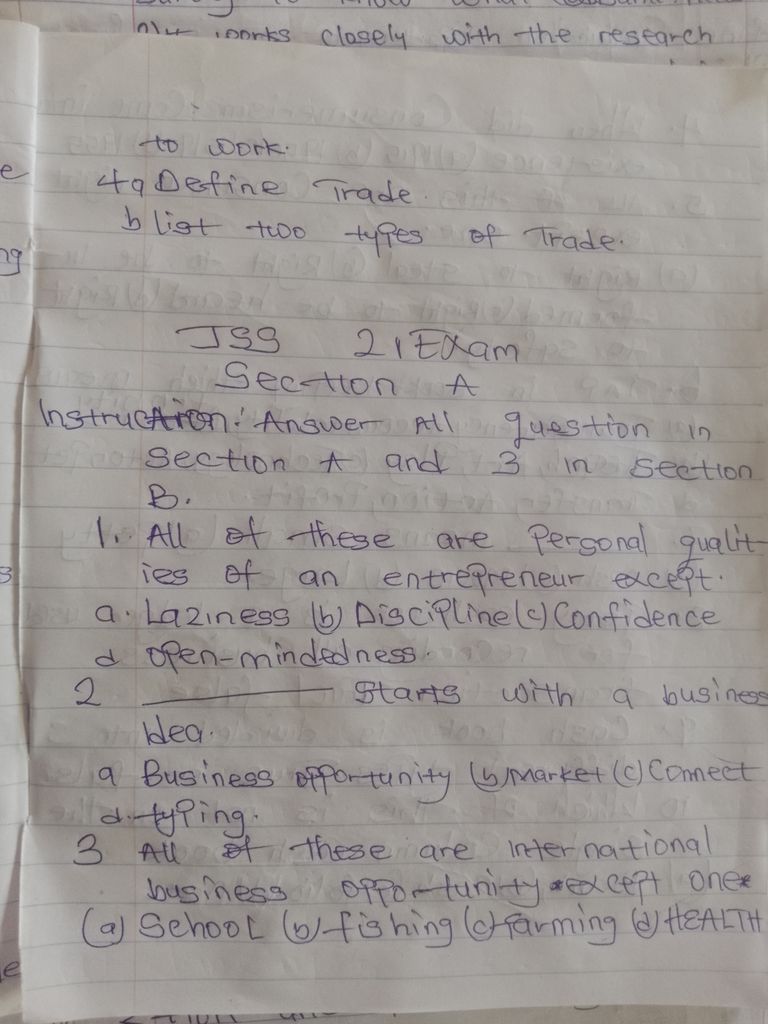 works closely with the research
to work.
4a Define Trade.
b list two types of Trade.
JSS 2, Exam
Section A
Instruction: Answer All question in
section A and 3 in section
B.
1. All of these are personal qualit-
ies of an entrepreneur except.
a. Laziness (b) Discipline (c) Confidence
d open-mindedness.
2 ______ starts with a business
Idea.
a Business opportunity (b) market (c) Connect
d. typing.
3 All of these are international
business opportunity *except one*
(a) School (b) fishing (c) farming (d) HEALTH